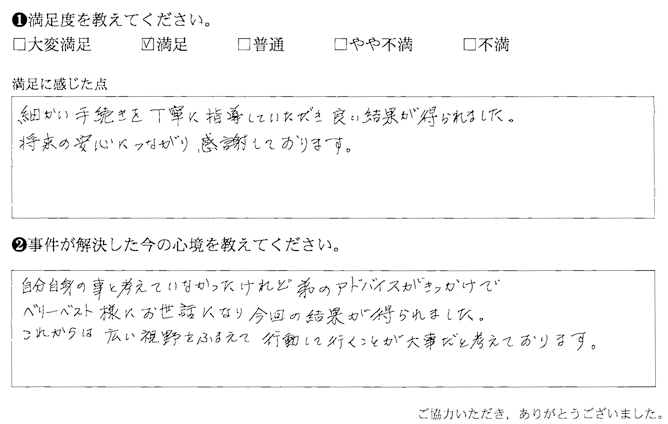 ❶満足度を教えてください。
□大変満足 ☑満足 □普通 □やや不満 □不満
満足に感じた点
細かい手続きを丁寧に指導していただき良い結果が得られました。
将来の安心につながり、感謝しております。
❷事件が解決した今の心境を教えてください。
自分自身の事と考えていなかったけれど弟のアドバイスがきっかけで
ベリーベスト様にお世話になり今回の結果が得られました。
これからは広い視野をふまえて行動して行くことが大事だと考えております。
ご協力いただき、ありがとうございました。